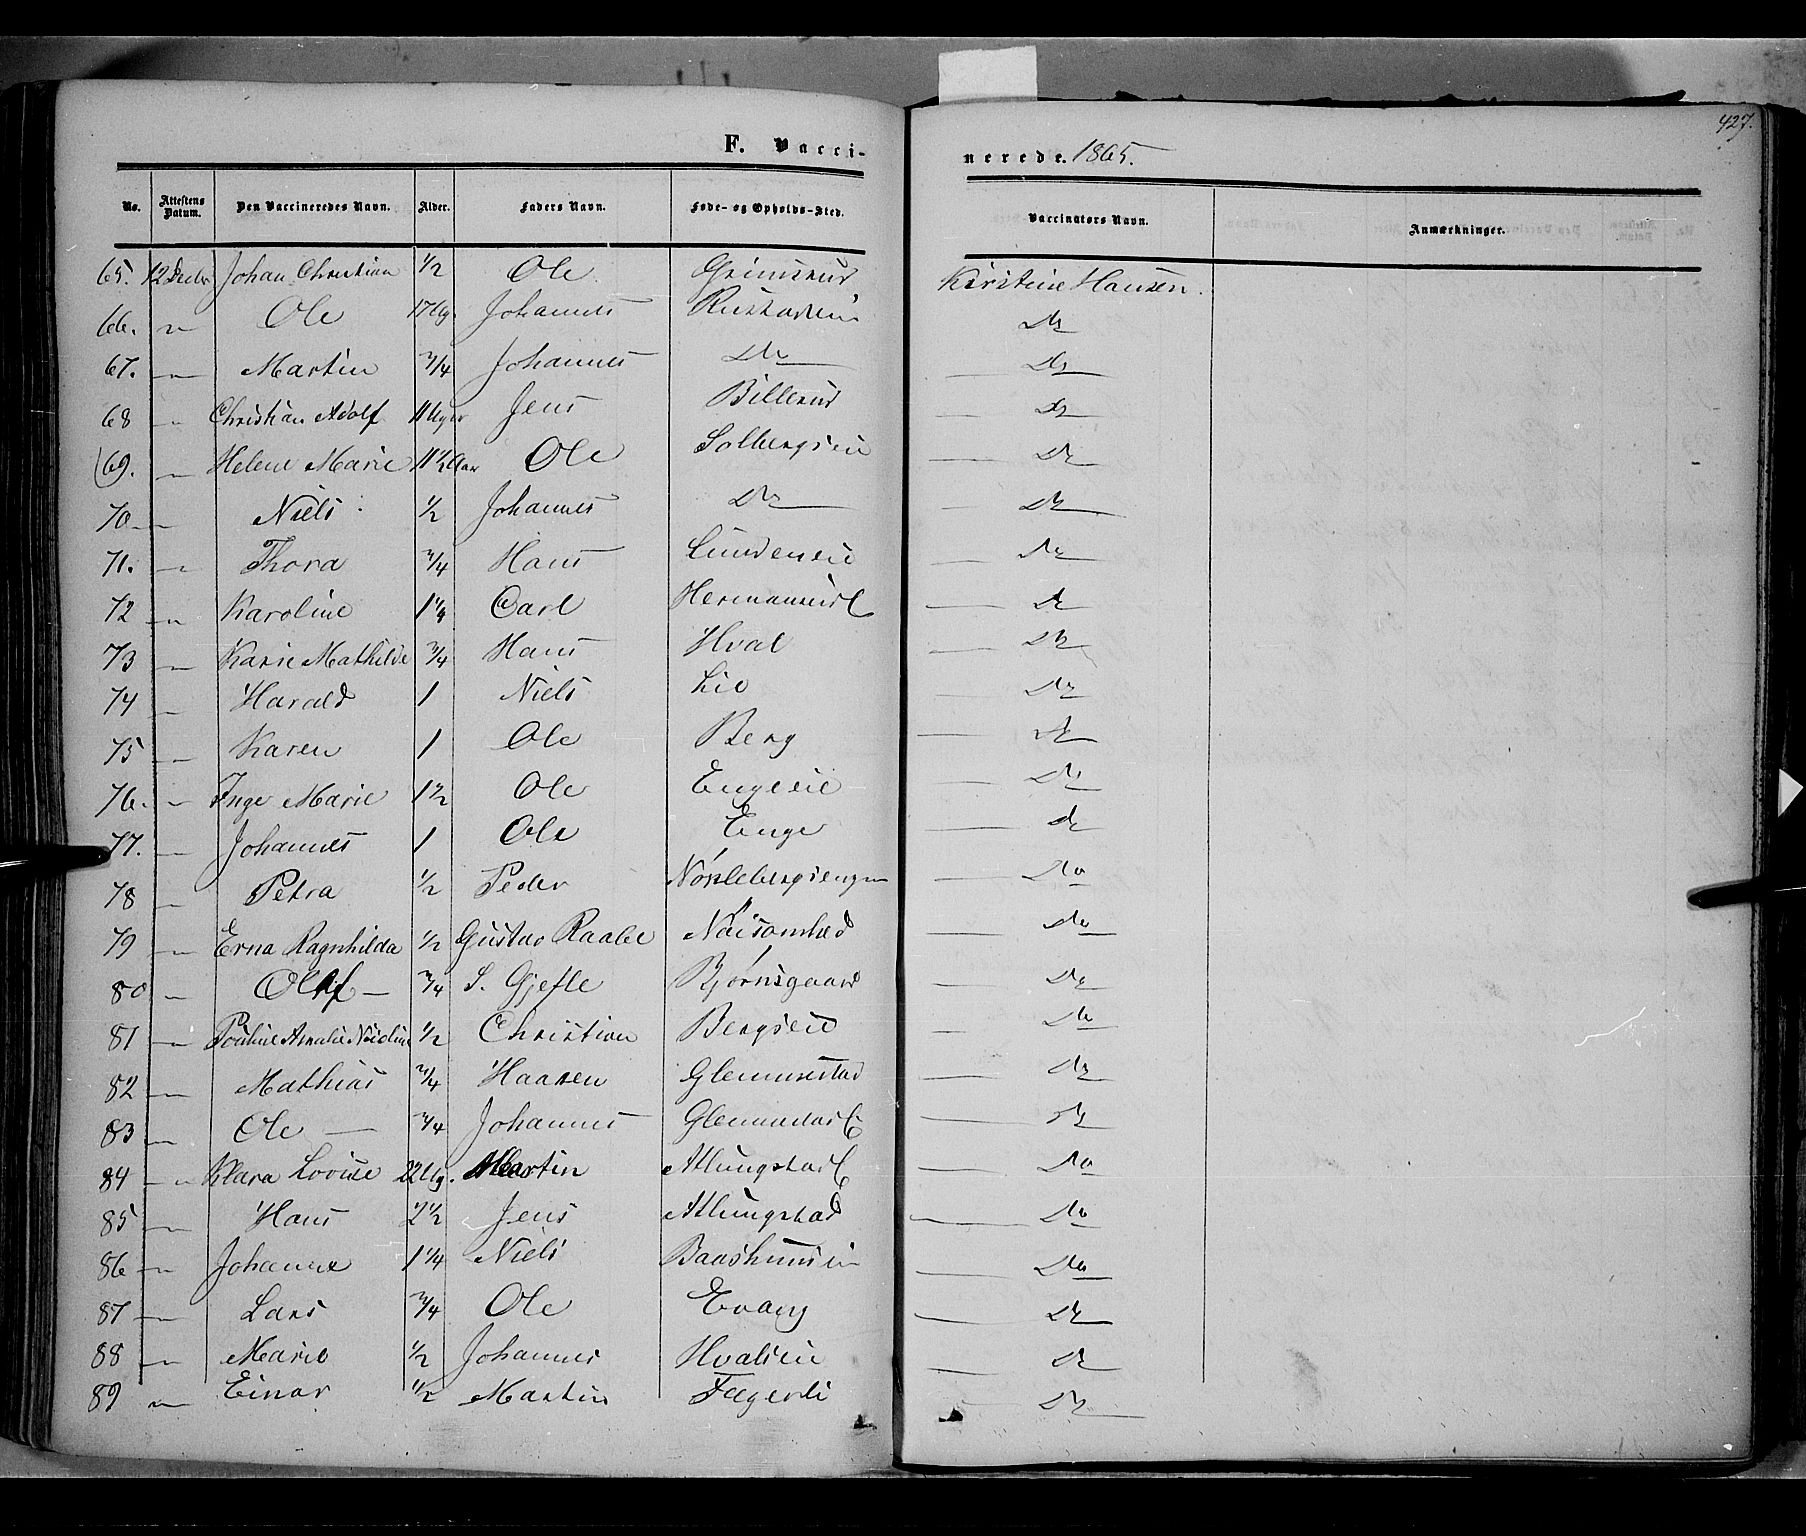 427.
F. Vacci-nerede. 1865.
No. Attestens Datum. Den Vaccineredes Navn. Alder. Faders Navn. Føde- og Opholds-Sted. Vaccinators Navn. Anmærkninger.
65. 12 Decbr Johan Christian 1/2 Ole Grimsrud Kirstine Hansen.
66. " Ole 17 Ug. Johannes Do
67. " Martin 3/4 Johannes Do Do
68 " Christian Adolf 11 Uger Jens Billerud Do
69. " Helene Marie 11 1/2 Aar Ole Solbergseie Do
70 " Niels 1/2 Johannes Do Do
71. " Thora 3/4 Hans Lundeneie Do
72 " Karoline 1 1/4 Carl Do
73 " Karie Mathilde 3/4 Hans Hval Do
74 " Harald 1 Niels Lie Do
75 " Karen 1 Ole Berg Do
76. " Inge Marie 1 1/2 Ole Engeeie Do
77. " Johannes 1 Ole Enge Do
78 " Petra 1/2 Peder Do
79 " Erna Ragnhilda 1/2 Gustav Raabe Nøisomhed Do
80 " Olaf 3/4 S. Gjefle Bjørnsgaard Do
81 " Amalie 1/2 Christian Bergseie Do
82 " Mathias 3/4 Haaken Glemmestad Do
83 " Ole 3/4 Johannes Do
84 " Klara Lovise 22 Ug. Martin Atlungstad E Do
85 " Hans 2 1/2 Jens Atlungstad Do
86 " Johanne 1 1/4 Niels Do
87 " Lars 3/4 Ole Evang Do
88 " Marie 1/2 Johannes Hvalseie Do
89 " Einar 1/2 Martin Fagerli Do